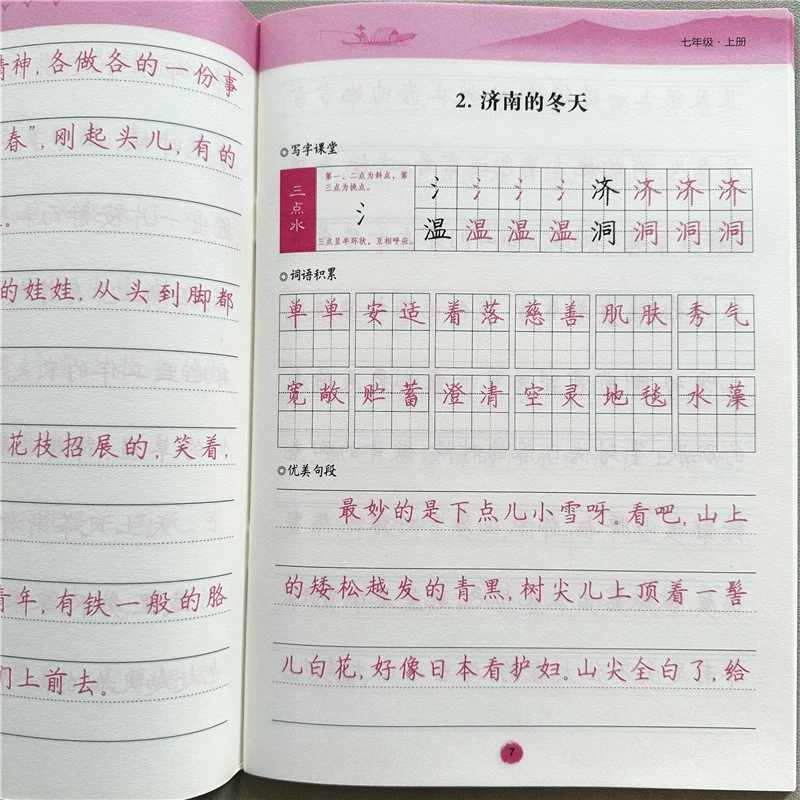 精神，各做各的一份事
春”，刚起头儿，有的
。
的娃娃，从头到脚都
花枝招展的，笑着，
青年，有铁一般的胳
们上前去。
七年级·上册
2. 济南的冬天
写字课堂
三点水
第一、二点为斜点，第
三点为挑点。
氵
三点呈半环状，互相呼应。
氵 氵 氵 氵 济 济 济 济
温 温 温 温 洞 洞 洞 洞
词语积累
单单 安适 着落 慈善 肌肤 秀气
宽敞 贮蓄 澄清 空灵 地毯 水藻
优美句段
最妙的是下点儿小雪呀。看吧，山上
的矮松越发的青黑，树尖儿上顶着一髻
儿白花，好像日本看护妇。山尖全白了，给
7